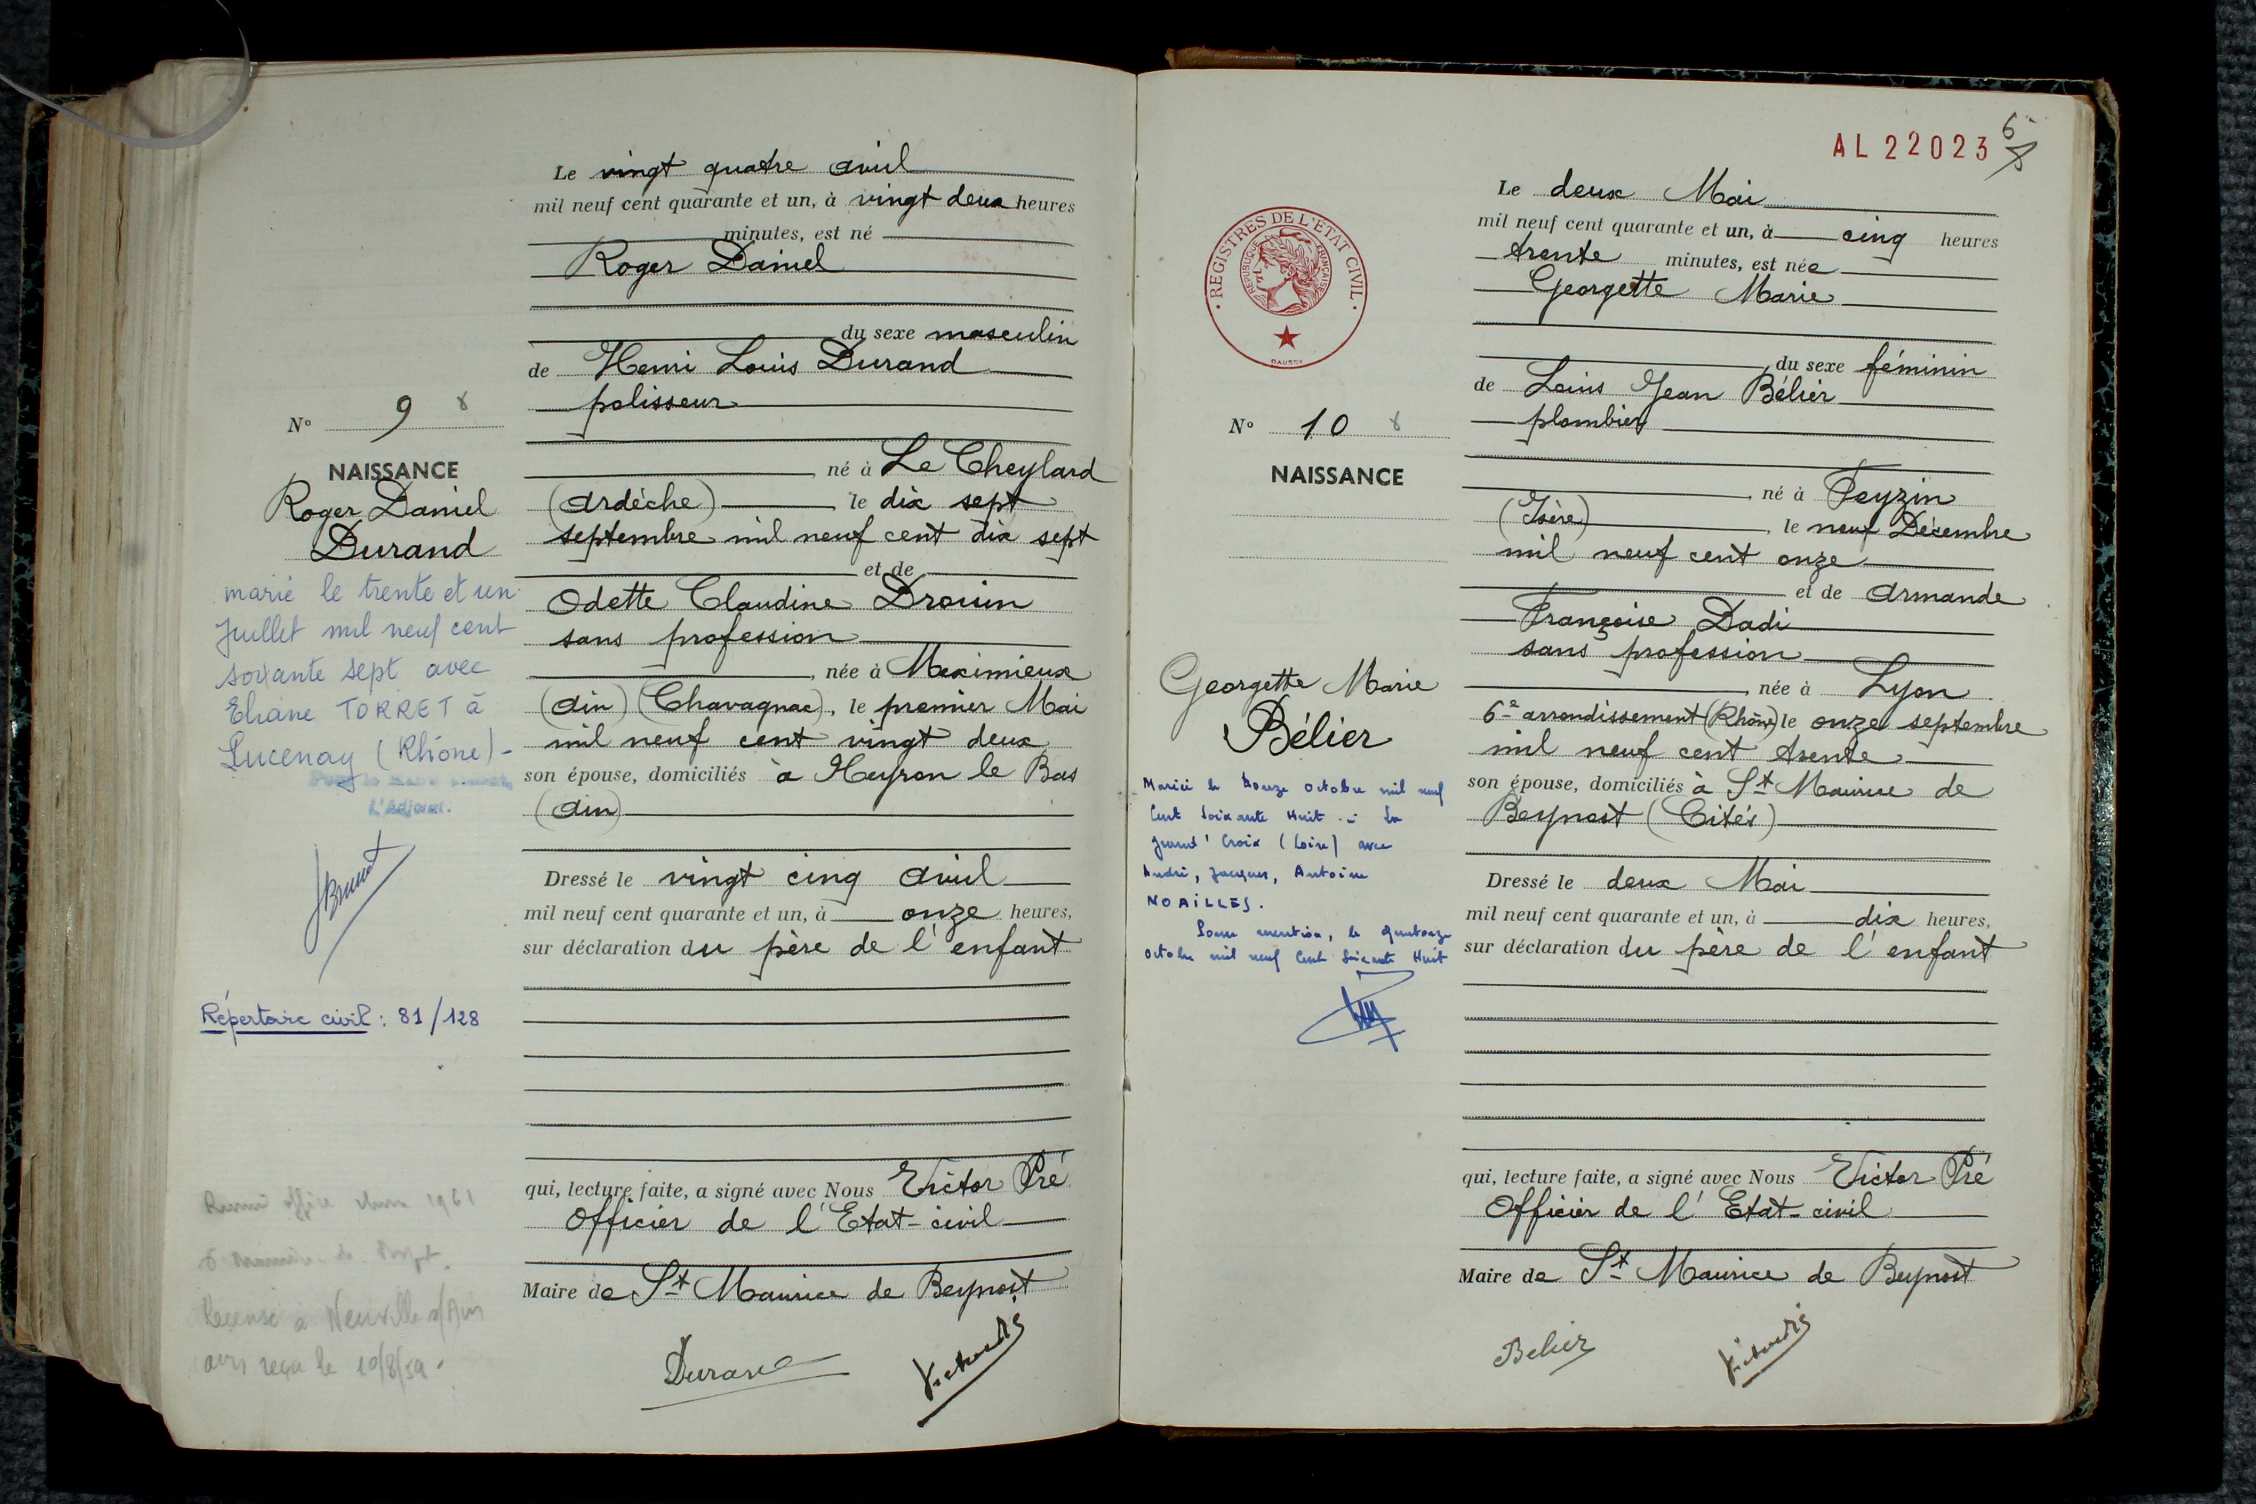 Le vingt quatre avril
mil neuf cent quarante et un, à vingt deux heures
minutes, est né
Roger Daniel
du sexe masculin
de Henri Louis Durand
polisseur
né à Le Cheylard
(Ardèche) le dix sept
septembre mil neuf cent dix sept
et de
Odette Claudine Drouin
sans profession
née à Meximieux
(Ain) (Chavagnac), le premier Mai
mil neuf cent vingt deux
son épouse, domiciliés à Heyron le Bas
(Ain)
Dressé le vingt cinq avril
mil neuf cent quarante et un, à onze heures,
sur déclaration du père de l'enfant
qui, lecture faite, a signé avec Nous Victor Pré
Officier de l'Etat-civil
Maire de St Maurice de Beynost
Durand
N° 9
NAISSANCE
Roger Daniel
Durand
marié le trente et un
Juillet mil neuf cent
soixante sept avec
Eliane TORRET à
Lucenay (Rhône) -
L'Adjoint.
Répertoire civil : 81/128
1961
Recensé à Neuville s/Ain
avis reçu le 10/8/59.
AL 22023
6
REGISTRES DE L'ETAT CIVIL
REPUBLIQUE FRANÇAISE
N° 10
NAISSANCE
Georgette Marie
Bélier
Mariée le douze octobre mil neuf
Cent Soixante Huit à La
Grand' Croix (Loire) avec
André, Jacques, Antoine
NOAILLES.
mention, le quatorze
Octobre mil neuf Cent Soixante Huit
Le deux Mai
mil neuf cent quarante et un, à cinq heures
trente minutes, est née
Georgette Marie
du sexe féminin
de Louis Jean Bélier
plombier
né à Feyzin
(Isère) le neuf Décembre
mil neuf cent onze
et de Armande
Françoise Dadi
sans profession
née à Lyon
6e arrondissement (Rhône) le onze septembre
mil neuf cent trente
son épouse, domiciliés à St Maurice de
Beynost (Cités)
Dressé le deux Mai
mil neuf cent quarante et un, à dix heures,
sur déclaration du père de l'enfant
qui, lecture faite, a signé avec Nous Victor Pré
Officier de l'Etat-civil
Maire de St Maurice de Beynost
Belier